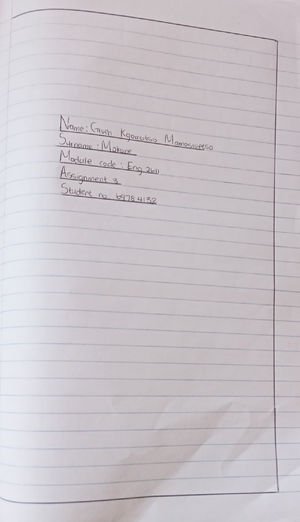 Name: Given Kgomotso
Surname: Makure
Module code: Eng
Assignment 3
Student no